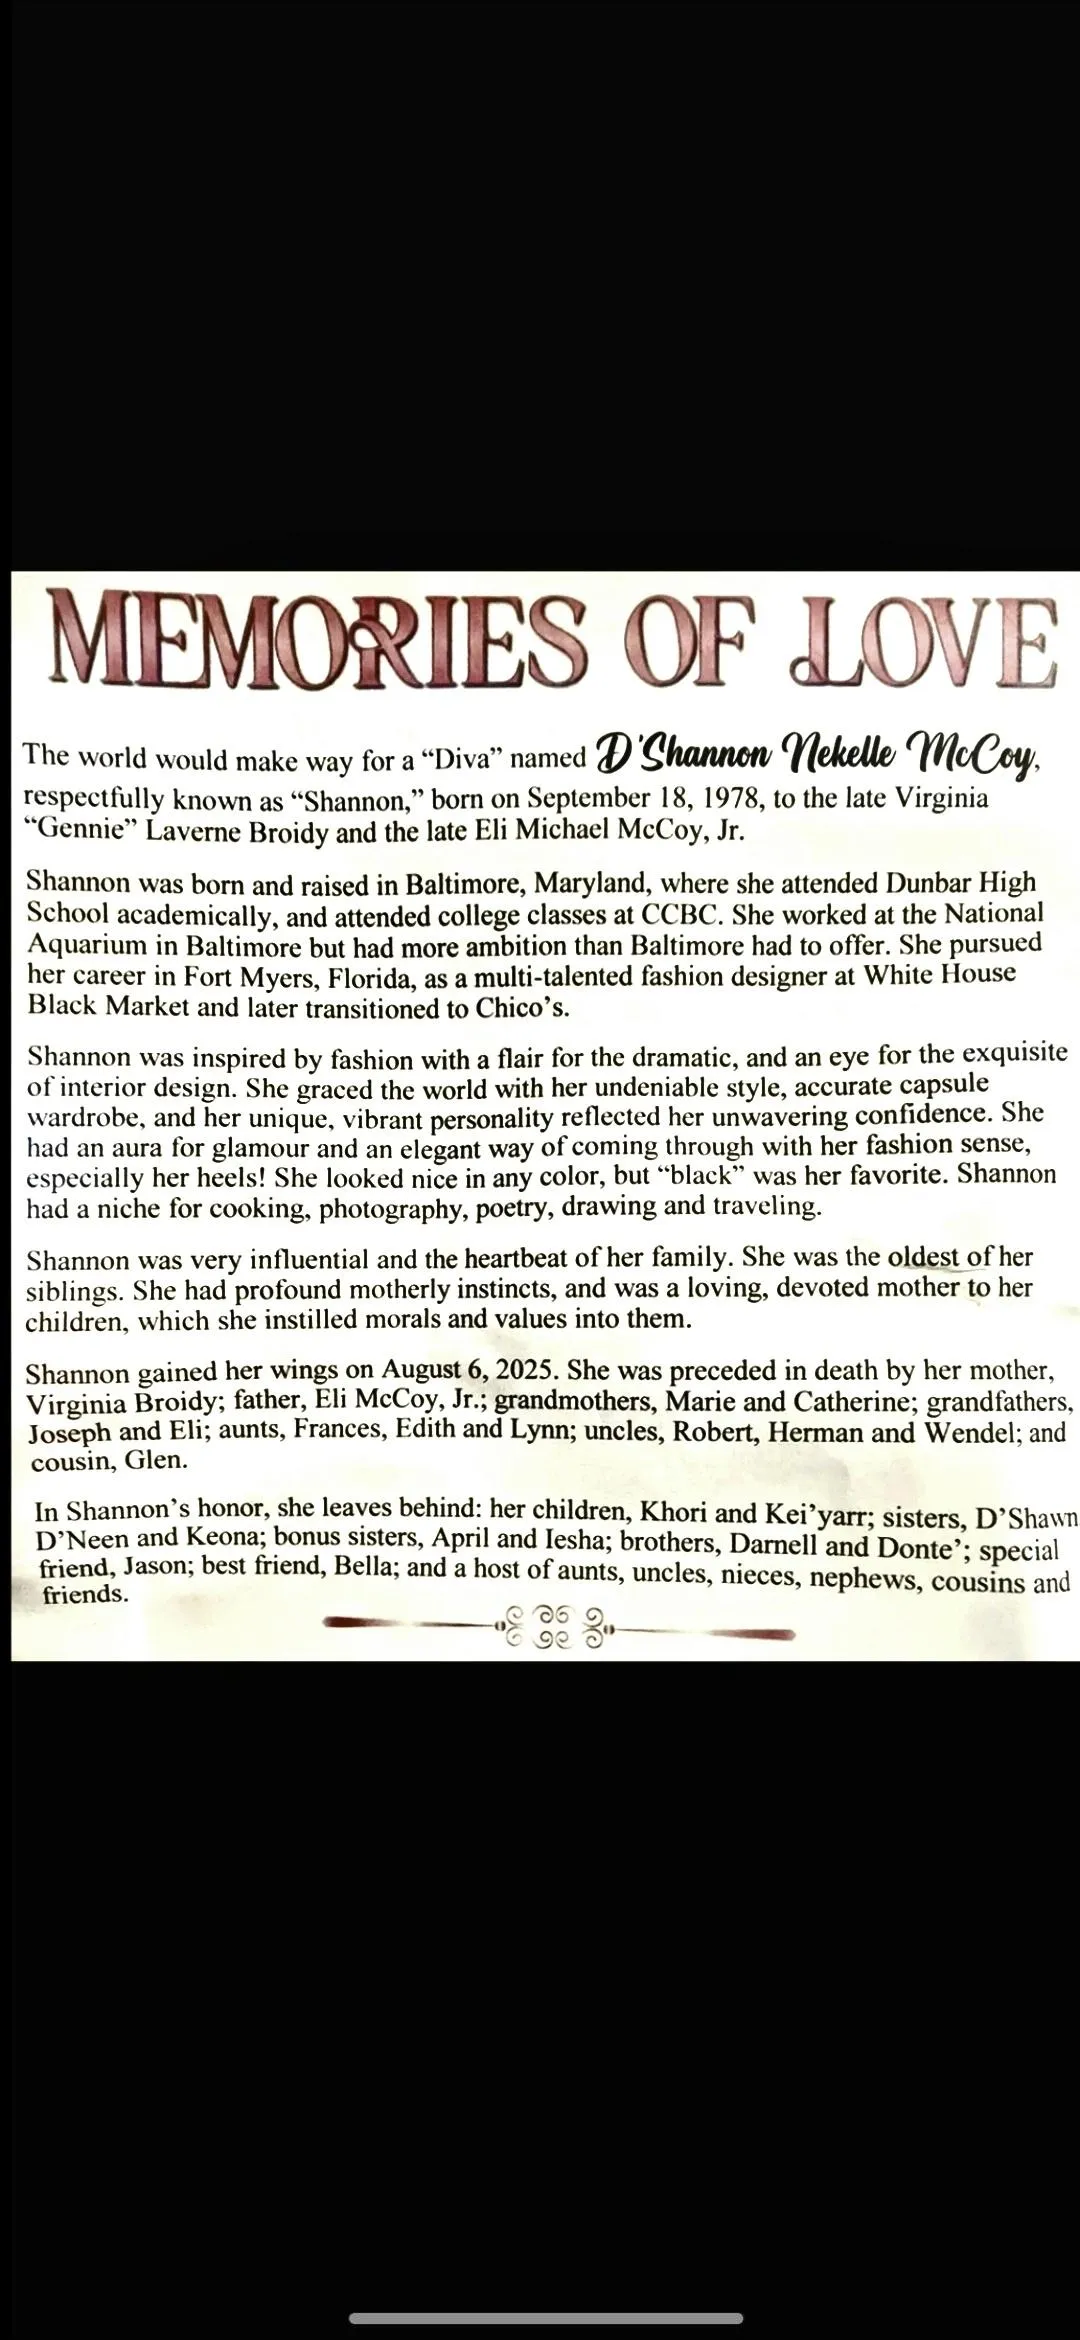 MEMORIES OF LOVE
The world would make way for a “Diva” named D'Shannon Nekelle McCoy,
respectfully known as “Shannon,” born on September 18, 1978, to the late Virginia
“Gennie” Laverne Broidy and the late Eli Michael McCoy, Jr.
Shannon was born and raised in Baltimore, Maryland, where she attended Dunbar High
School academically, and attended college classes at CCBC. She worked at the National
Aquarium in Baltimore but had more ambition than Baltimore had to offer. She pursued
her career in Fort Myers, Florida, as a multi-talented fashion designer at White House
Black Market and later transitioned to Chico’s.
Shannon was inspired by fashion with a flair for the dramatic, and an eye for the exquisite
of interior design. She graced the world with her undeniable style, accurate capsule
wardrobe, and her unique, vibrant personality reflected her unwavering confidence. She
had an aura for glamour and an elegant way of coming through with her fashion sense,
especially her heels! She looked nice in any color, but “black” was her favorite. Shannon
had a niche for cooking, photography, poetry, drawing and traveling.
Shannon was very influential and the heartbeat of her family. She was the oldest of her
siblings. She had profound motherly instincts, and was a loving, devoted mother to her
children, which she instilled morals and values into them.
Shannon gained her wings on August 6, 2025. She was preceded in death by her mother,
Virginia Broidy; father, Eli McCoy, Jr.; grandmothers, Marie and Catherine; grandfathers,
Joseph and Eli; aunts, Frances, Edith and Lynn; uncles, Robert, Herman and Wendel; and
cousin, Glen.
In Shannon’s honor, she leaves behind: her children, Khori and Kei’yarr; sisters, D’Shawn
D’Neen and Keona; bonus sisters, April and Iesha; brothers, Darnell and Donte’; special
friend, Jason; best friend, Bella; and a host of aunts, uncles, nieces, nephews, cousins and
friends.